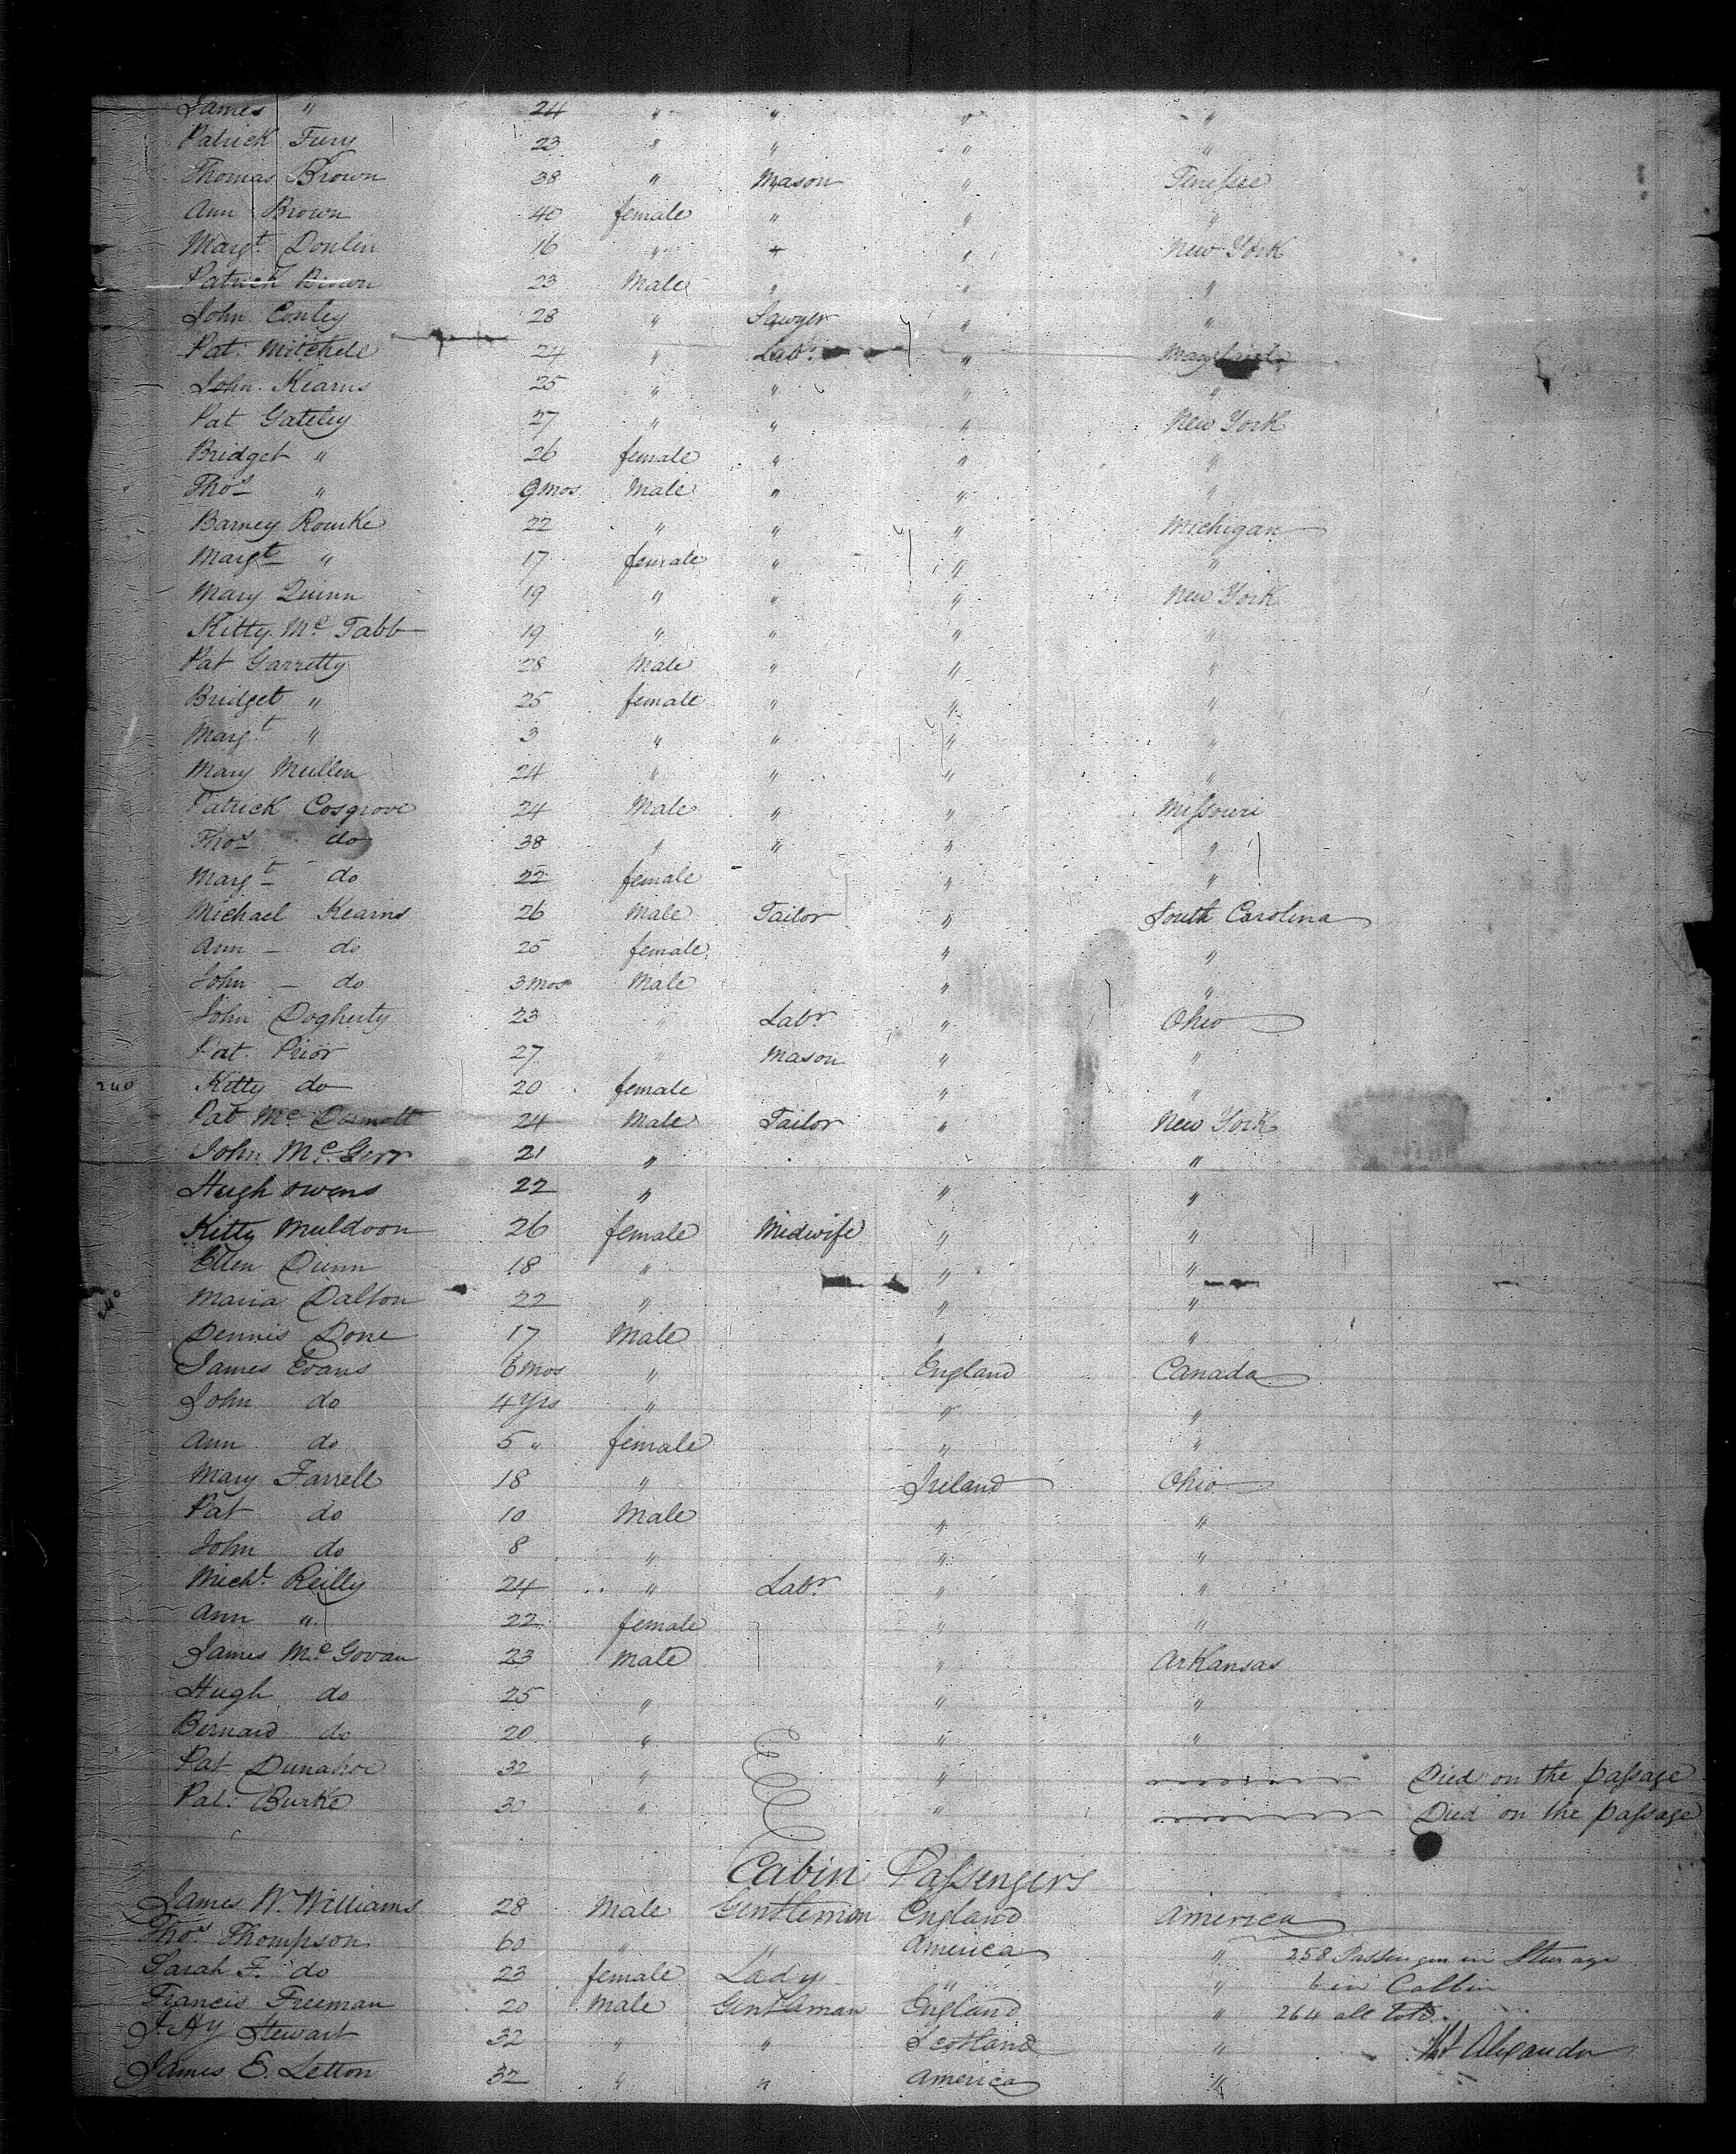 James " 24 " " " "
Patrick Fury 23 " " " "
Thomas Brown 38 " Mason " Tenissee
Ann Brown 40 female " " "
Margt. Donlin 16 " " " New York
Patrick Brown 23 Male " " "
John Conley 28 " Sawyer " "
Pat. Mitchell 24 " Labr. " Maryland
John Kearns 25 " " " "
Pat Gateley 27 " " " New York
Bridget " 26 female " " "
Thos " 9 mos Male " " "
Barney Rourke 22 " " " Michigan
Margt " 17 female " " "
Mary Quinn 19 " " " New York
Kitty Mc Tabb 19 " " " "
Pat Garretty 28 Male " " "
Bridget " 25 female " " "
Margt " 3 " " " "
Mary Mullen 24 " " " "
Patrick Cosgrove 24 Male " " Missouri
Thos do 38 " " " "
Margt do 22 female " "
Michael Kearns 26 Male Tailor " South Carolina
Ann - do 25 female " "
John - do 3 mos Male " "
John Dogherty 23 " Labr " Ohio
Pat. Prior 27 " Mason " "
240 Kitty do 20 female " "
Pat Mc Dermott 24 Male Tailor " New York
John Mc Gerr 21 " " "
Hugh Owens 22 " " "
Kitty Muldoon 26 female Midwife " "
Ellen Quinn 18 " " "
240 Maria Dalton 22 " " "
Dennis Done 17 Male " "
James Evans 6 mos " England Canada
John do 4 Yrs " " "
Ann do 5 " female " "
Mary Farrell 18 " Ireland Ohio
Pat do 10 Male " "
John do 8 " " "
Michl. Reilly 24 " Labr " "
Ann " 22 female " "
James Mc Govan 23 Male " Arkansas
Hugh do 25 " " "
Bernard do 20 " " "
Pat Dunahoe 32 " " Died on the passage
Pat. Burke 30 " " Died on the passage
Cabin Passengers
James W. Williams 28 Male Gentleman England America
Thos. Thompson 60 " " America " 258 Passengers in Sterage
Sarah F. do 23 female Lady " " 6 in Cabbin
Francis Freeman 20 Male Gentleman England " 264 all told.
J. Hy Stewart 32 " " Scotland " Alexander
James E. Letton 32 " " America "